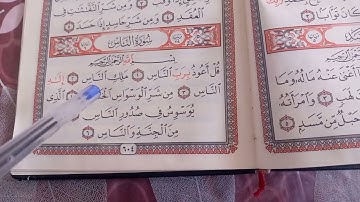 الْعُقَدِ ۝ وَمِن شَرِّ حَاسِدٍ إِذَا حَسَدَ ۝
سُورَةُ النَّاسِ
بِسْمِ اللَّهِ الرَّحْمَٰنِ الرَّحِيمِ
قُلْ أَعُوذُ بِرَبِّ النَّاسِ ۝ مَلِكِ النَّاسِ ۝ إِلَٰهِ
النَّاسِ ۝ مِن شَرِّ الْوَسْوَاسِ الْخَنَّاسِ ۝ الَّذِي
يُوَسْوِسُ فِي صُدُورِ النَّاسِ ۝
مِنَ الْجِنَّةِ وَالنَّاسِ ۝
٦٠٤
كَانَ تَوَّابًا
عَنْهُ مَالُهُ وَمَا
وَامْرَأَتُهُ
حَبْلٌ مِّن مَّسَدٍ